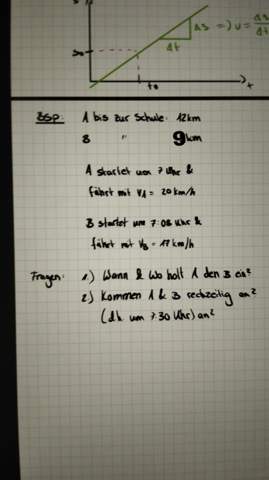 s
Δs => v = Δs/Δt
Δt
s₀
t₀
t
Bsp: A bis zur Schule: 12km
B " 9km
A startet um 7 Uhr &
fährt mit vA = 20 km/h
B startet um 7:08 Uhr &
fährt mit vB = 17 km/h
Fragen: 1.) Wann & Wo holt A den B ein?
2.) Kommen A & B rechzeitig an?
(d.h. um 7:30 Uhr) an?